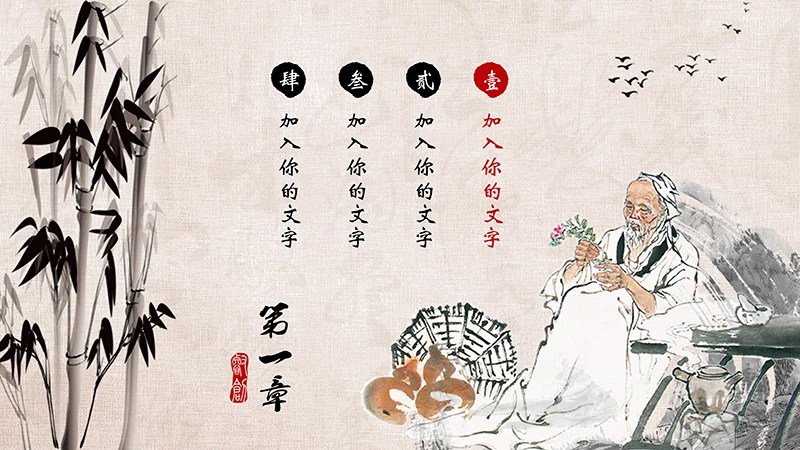 壹
加入你的文字
贰
加入你的文字
叁
加入你的文字
肆
加入你的文字
第一章